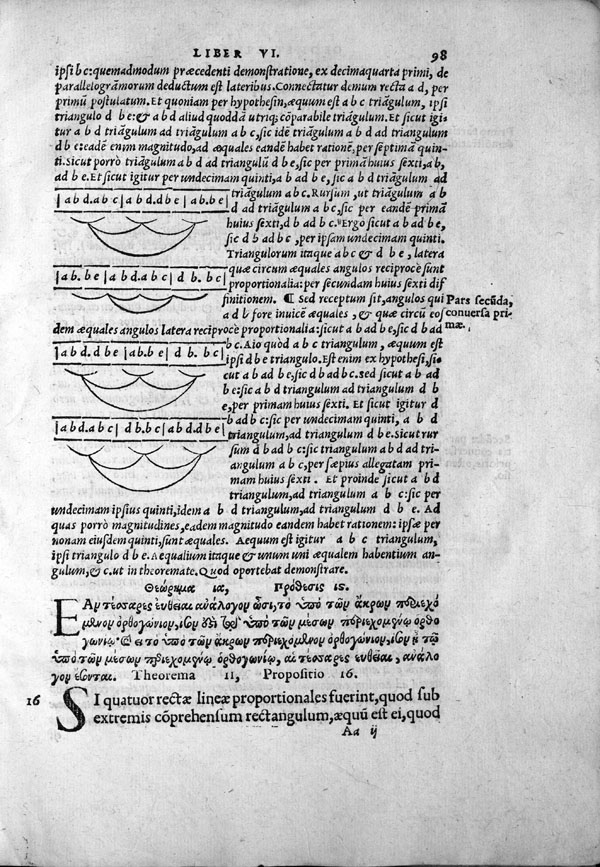 LIBER VI. 98
ipsi b c: quemadmodum præcedenti demonstratione, ex decimaquarta primi, de
parallelogrãmorum deductum est lateribus. Connectatur demum recta a d, per
primũ postulatum. Et quoniam per hypothesin, æquum est a b c triãgulum, ipsi
triangulo d b e: & a b d aliud quoddã utriq; cõparabile triãgulum. Et sicut igi
tur a b d triãgulum ad triãgulum a b c, sic idẽ triãgulum a b d ad triangulum
d b c: eadẽ enim magnitudo, ad æquales eandẽ habet rationẽ, per septimã quin-
ti. Sicut porrò triãgulum a b d ad triangulũ d b e, sic per primã huius sexti, a b,
ad b e. Et sicut igitur per undecimam quinti, a b ad b e, sic a b d triãgulum ad
triãgulum a b c. Rursum, ut triãgulum a b
| a b d. a b c | a b d. d b e | a b. b e |
d ad triangulum a b c, sic per eandẽ primã
huius sexti, d b ad b c. Ergo sicut a b ad b e,
sic d b ad b c, per ipsam undecimam quinti.
Triangulorum itaque a b c & d b e, latera
quæ circum æquales angulos reciprocè sunt
| a b. b e | a b d. a b c | d b. b c |
proportionalia: per secundam huius sexti dif
finitionem. ¶ Sed receptum sit, angulos qui
Pars secũda,
a d b fore inuicẽ æquales, & quæ circũ eos
conuersa pri-
dem æquales angulos latera reciprocè proportionalia: sicut a b ad b e, sic d b ad
mæ.
b c. Aio quòd a b c triangulum, æquum est
| a b d. d b e | a b. b e | d b. b c |
ipsi d b e triangulo. Est enim ex hypothesi, si-
cut a b ad b e, sic d b ad b c. Sed sicut a b ad
b e: sic a b d triangulum ad triangulum d b
e, per primam huius sexti. Et sicut igitur d
b ad b c: sic per undecimam quinti, a b d
| a b d. a b c | d b. b c | a b d. d b e |
triangulum, ad triangulum d b e. Sicut rur
sum d b ad b c: sic triangulum a b d ad tri-
angulum a b c, per sæpius allegatam pri-
mam huius sexti. Et proinde sicut a b d
triangulum, ad triangulum a b c: sic per
undecimam ipsius quinti, idem a b d triangulum, ad triangulum d b e. Ad
quas porrò magnitudines, eadem magnitudo eandem habet rationem: ipsæ per
nonam eiusdem quinti, sunt æquales. Aequum est igitur a b c triangulum,
ipsi triangulo d b e. Aequalium itaque & unum uni æqualem habentium an-
gulum, & c. ut in theoremate. Quod oportebat demonstrare.
Θεώρημα ια, Πρόθεσις ις.
Ἐὰν τέσσαρες εὐθεῖαι ἀνάλογον ὦσι, τὸ ὑπὸ τῶν ἄκρων περιεχό
μενον ὀρθογώνιον, ἴσον ὅζι τῷ ὑπὸ τῶν μέσων περιεχομένῳ ὀρθο
γωνίῳ. Καὶ εἰ τὸ ὑπὸ τῶν ἄκρων περιεχόμενον ὀρθογώνιον, ἴσον ᾖ τῷ
ὑπὸ τῶν μέσων περιεχομένῳ ὀρθογωνίῳ, αἱ τέσσαρες εὐθεῖαι, ἀνάλο
γον ἔσονται. Theorema 11, Propositio 16.
16 SI quatuor rectæ lineæ proportionales fuerint, quod sub
extremis cõprehensum rectangulum, æquũ est ei, quod
Aa ij